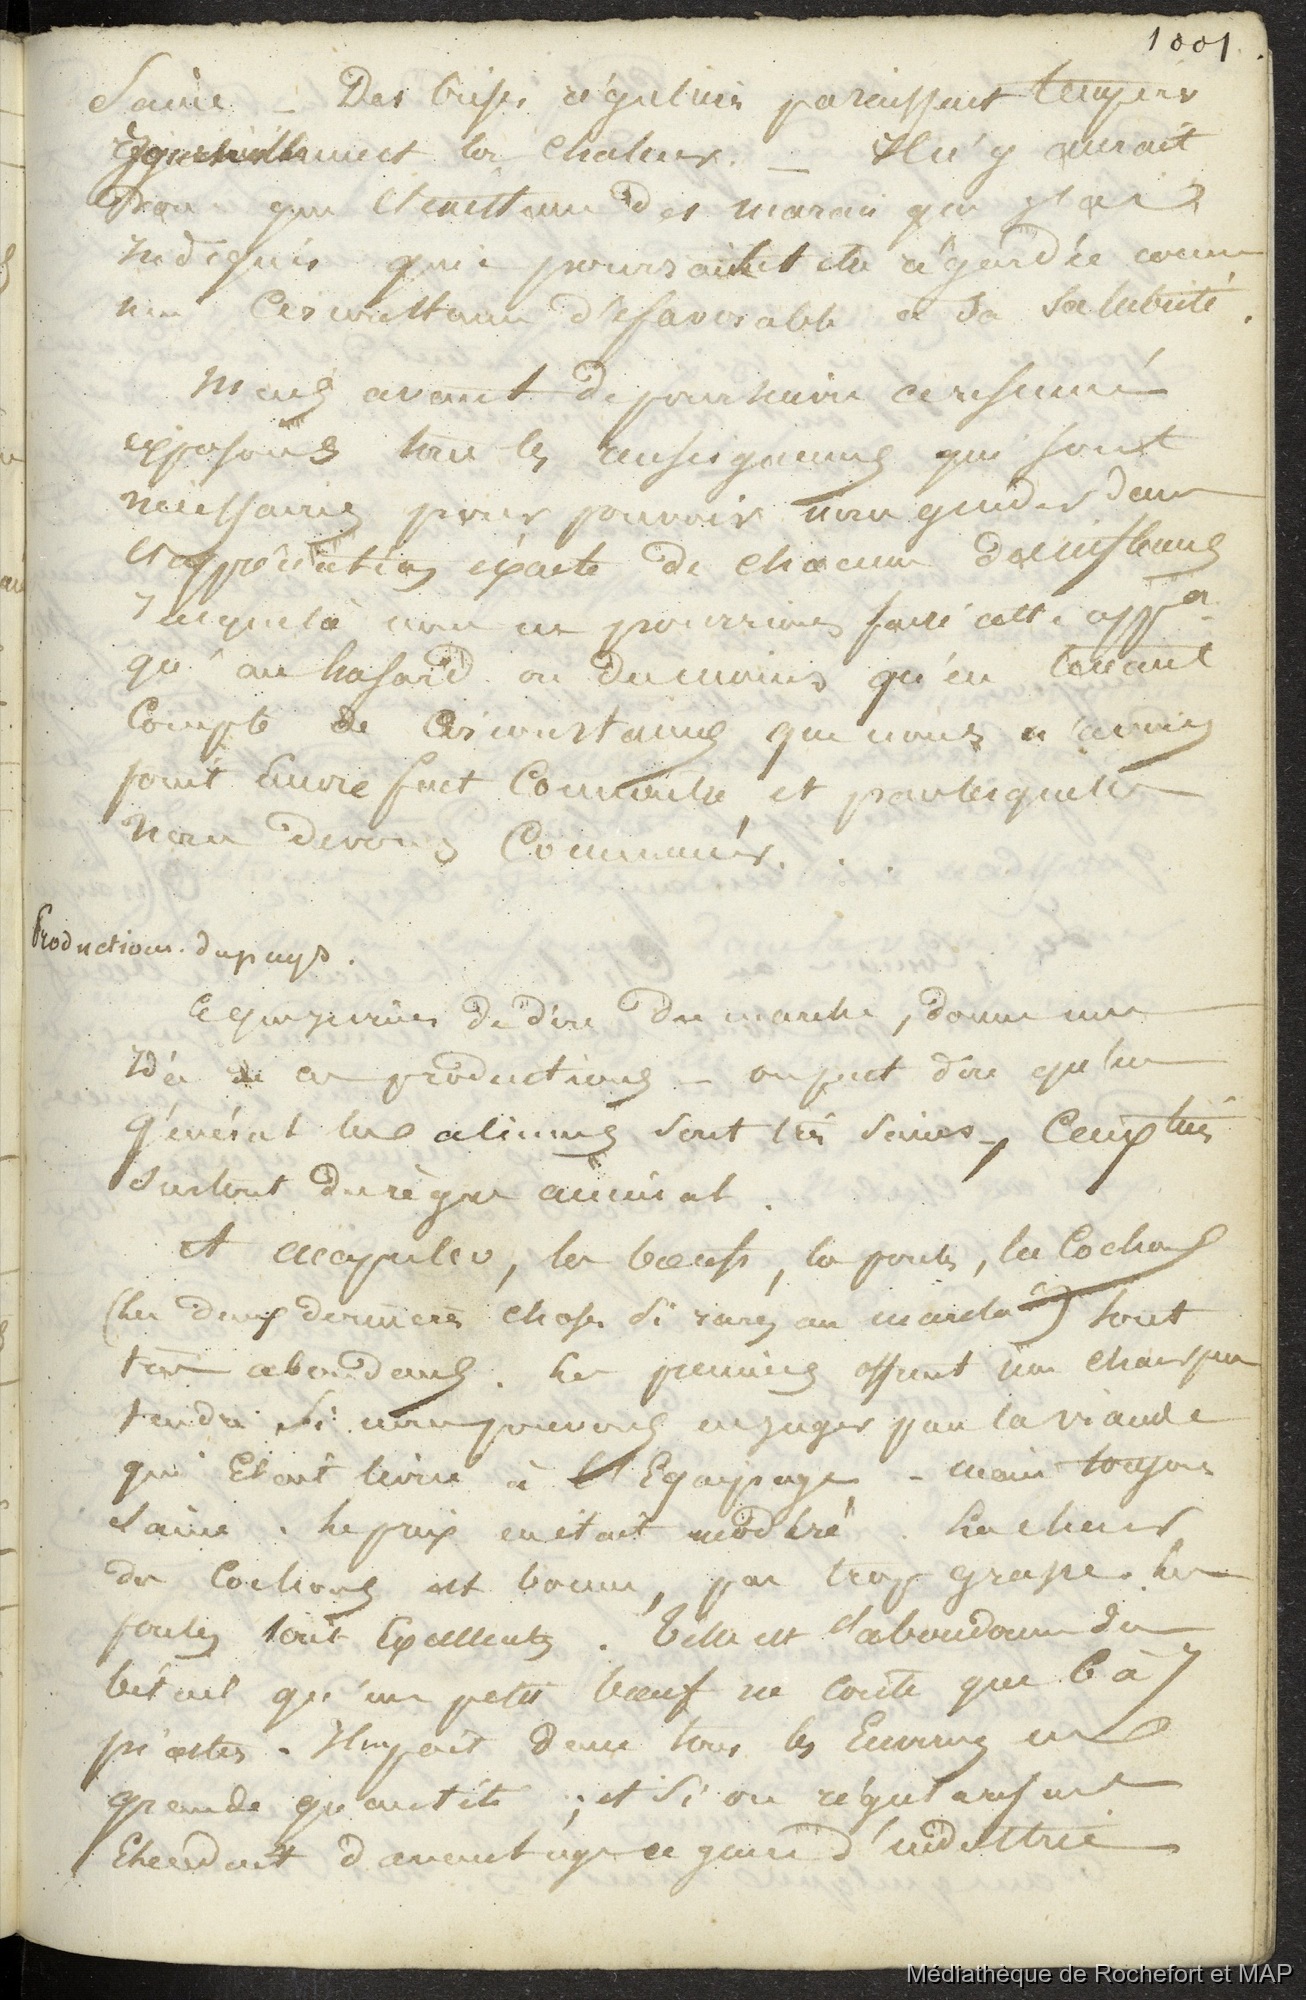 1001.
Saine _ Des brises régulieres paraissent tempérer
la chaleur. _ Il n'y aurait
donc que l'existence des marais que j'ai
indiqués qui pourrait etre régardée comme
une Circonstance défavorable à sa salubrité.
Mais avant de poursuivre ce résumé
exposons tous les renseignemens qui sont
nécessaires pour pouvoir nous guider dans
l'appréciation exacte de chacune
Jusques là nous ne pourrions faire cette app.on
qu'au hasard ou du moins qu'en tenant
Compte de Circonstances que nous n'avons
point encore fait Connaitre, et par lesquelles
nous devons Commencer. . .
Productions du pays.
Ce que je viens de dire du marché, donne une
idée de ces productions _ on peut dire qu'en
général les alimens sont très sains,
surtout du règne animal.
A Acapulco, les boeufs, la poule, les Cochons
(les deux dernieres choses si rares au marché) sont
tres abondans. Les premiers offrent une chair peu
tendre si nous pouvons en juger par la viande
qui Etait livrée à l'Equipage - mais toujours
saine. Le prix en était modéré. La chair
de Cochons est bonne, pas trop grasse. Les
poules sont Excellentes. Telle est l'abondance du
bétail qu'un petit boeuf ne coute que 6 à 7
piastres. Il paît dans tous les Environs en
grande quantité ; et si on régularisant
Etendait d'avantage ce genre d'industrie
Médiathèque de Rochefort et MAP